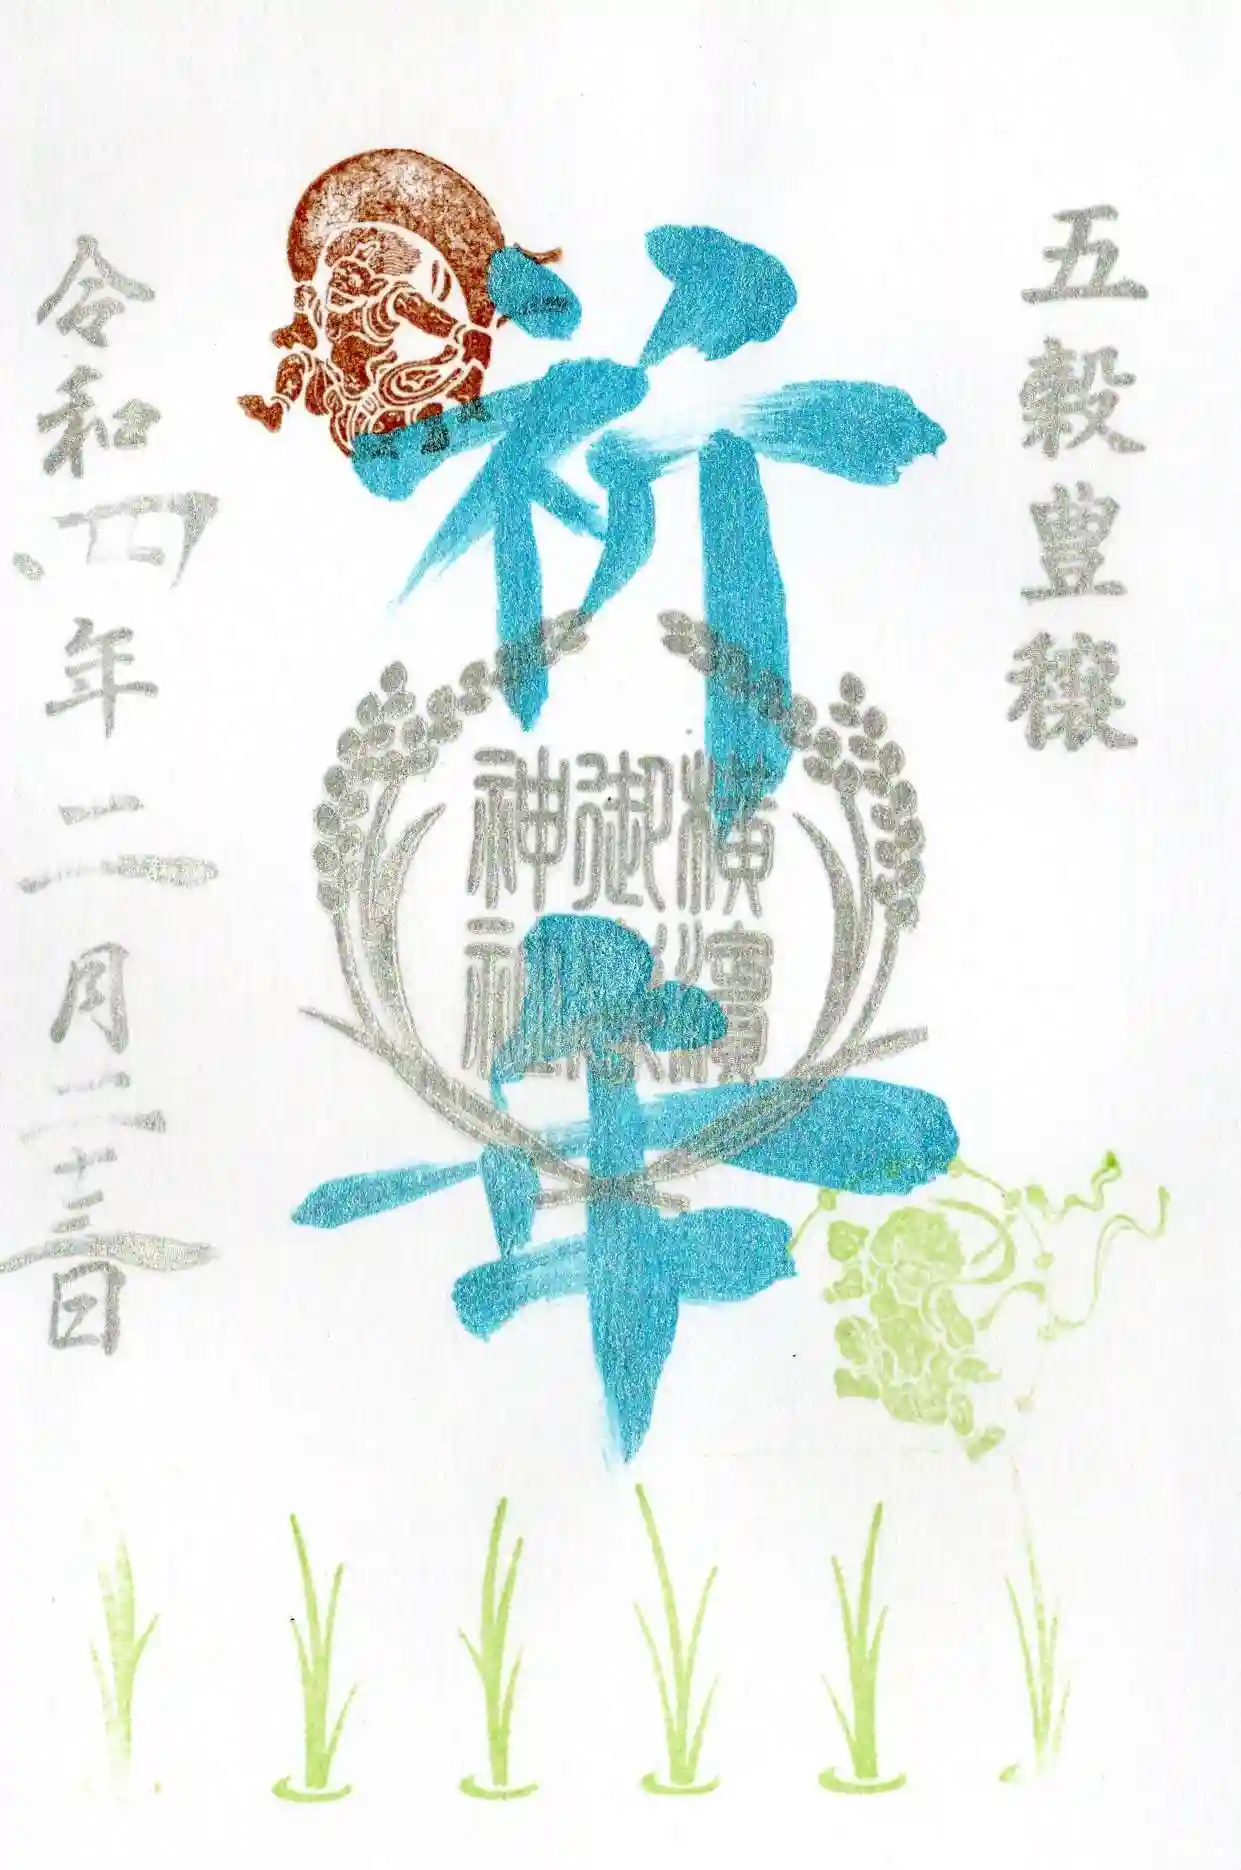 五穀豊穣
祈年
横濱
御嶽
神社
令和四年二月二十三日